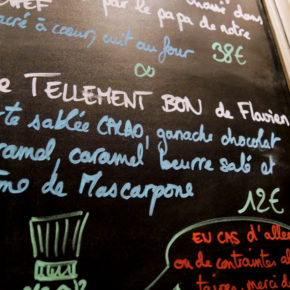 CHEF par le papa de notre
sacré à coeur, cuit au four 38€
TELLEMENT BON de Flavien
sablée CACAO, ganache chocolat
caramel beurre salé et
de Mascarpone
12€
EN CAS d'aller
ou de contraintes al
merci d